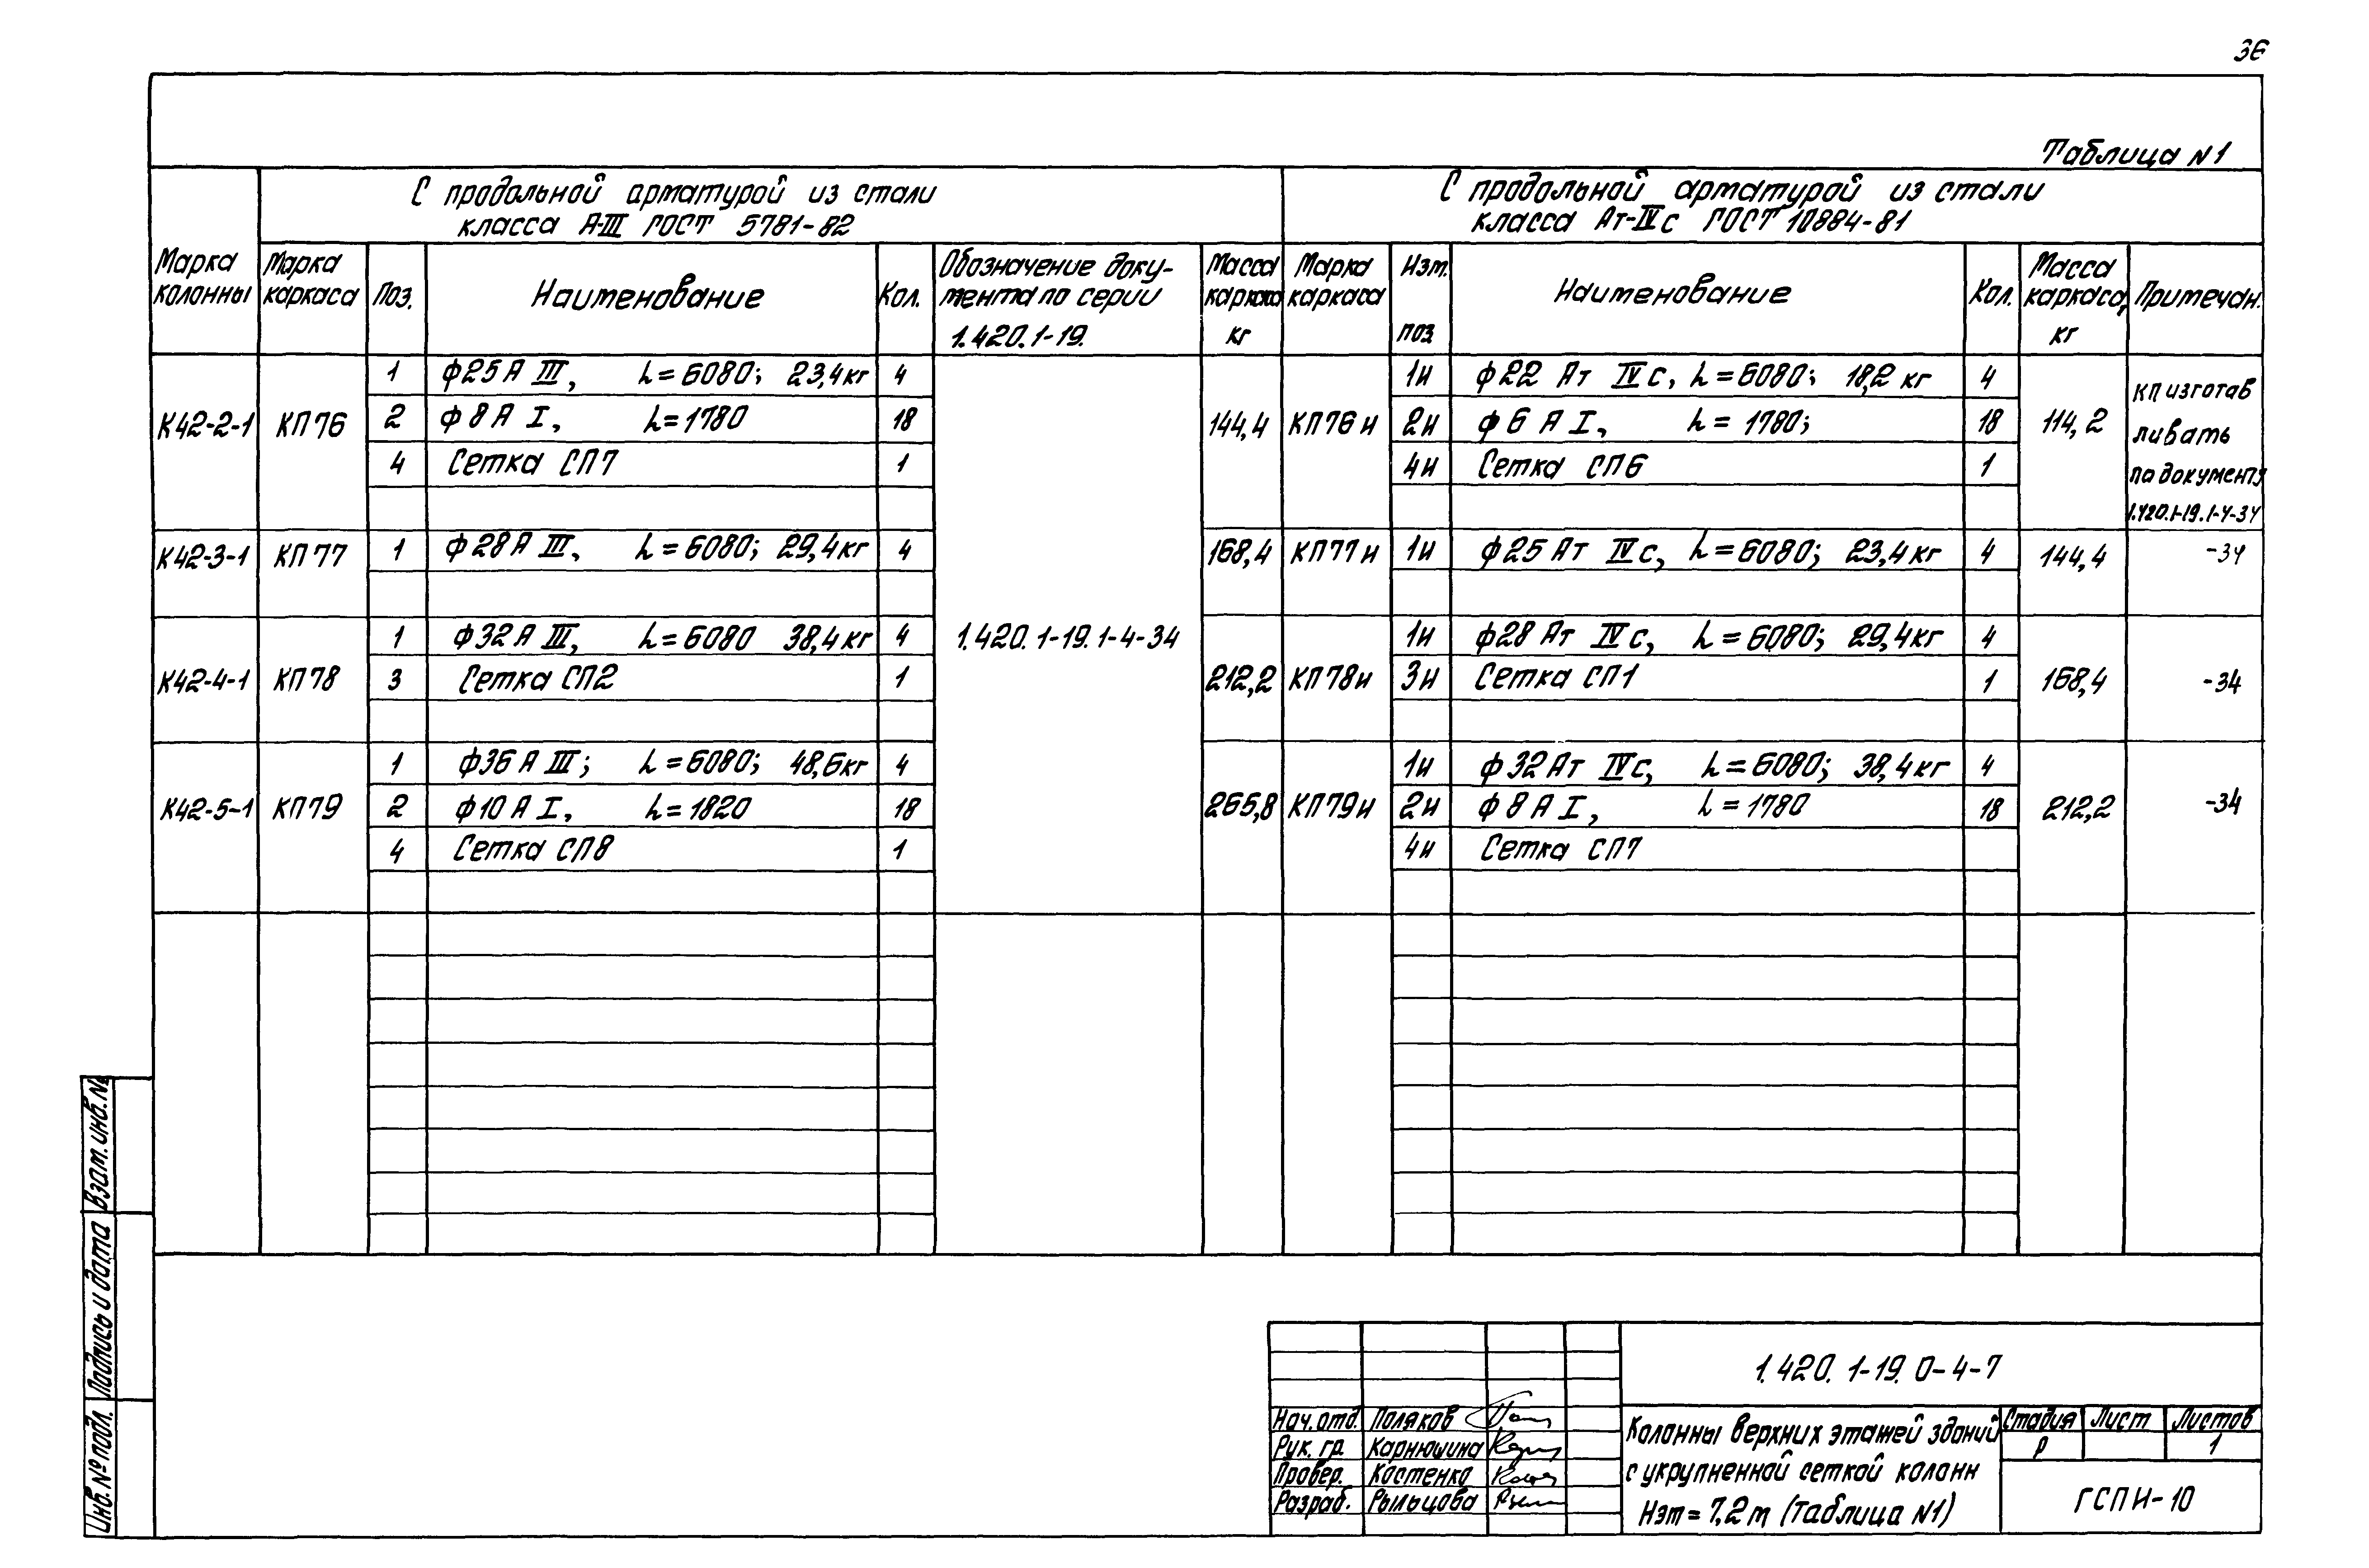 36
Таблица N1
С продольной арматурой из стали
класса А-III ГОСТ 5781-82
С продольной арматурой из стали
класса Ат-IVс ГОСТ 10884-81
Марка колонны
Марка каркаса
Поз.
Наименование
Кол.
Обозначение доку-
мента по серии
1.420.1-19.
Масса каркаса кг
Марка каркаса
Изм. поз
Наименование
Кол.
Масса каркаса, кг
Примечан.
К42-2-1 КП76 1 ф25 А III, L=6080; 23,4кг 4 144,4 КП76и 1и ф22 Ат IVс, L=6080; 18,2 кг 4 114,2 КП изготав
2 ф8 А I, L=1780 18 2и ф6 А I, L=1780; 18 ливать
4 Сетка СП7 1 4и Сетка СП6 1 по документу
1.420.1-19.1-4-34
К42-3-1 КП77 1 ф28 А III, L=6080; 29,4кг 4 168,4 КП77и 1и ф25 Ат IVс, L=6080; 23,4кг 4 144,4 -34
К42-4-1 КП78 1 ф32 А III, L=6080 38,4кг 4 1.420.1-19.1-4-34 212,2 КП78и 1и ф28 Ат IVс, L=6080; 29,4кг 4 168,4 -34
3 Сетка СП2 1 3и Сетка СП1 1
К42-5-1 КП79 1 ф36 А III; L=6080; 48,6кг 4 265,8 КП79и 1и ф32 Ат IVс, L=6080; 38,4кг 4 212,2 -34
2 ф10 А I, L=1820 18 2и ф8 А I, L=1780 18
4 Сетка СП8 1 4и Сетка СП7
Взам. инв. №
Подпись и дата
Инв. № подл.
1.420.1-19.0-4-7
Нач. отд. Поляков
Рук. гр. Карнюшина
Провер. Костенко
Разраб. Рыльцова
Колонны верхних этажей зданий
с укрупненной сеткой колонн
Нэт = 7,2 м (Таблица N1)
Стадия Лист Листов
Р 1
ГСПИ-10